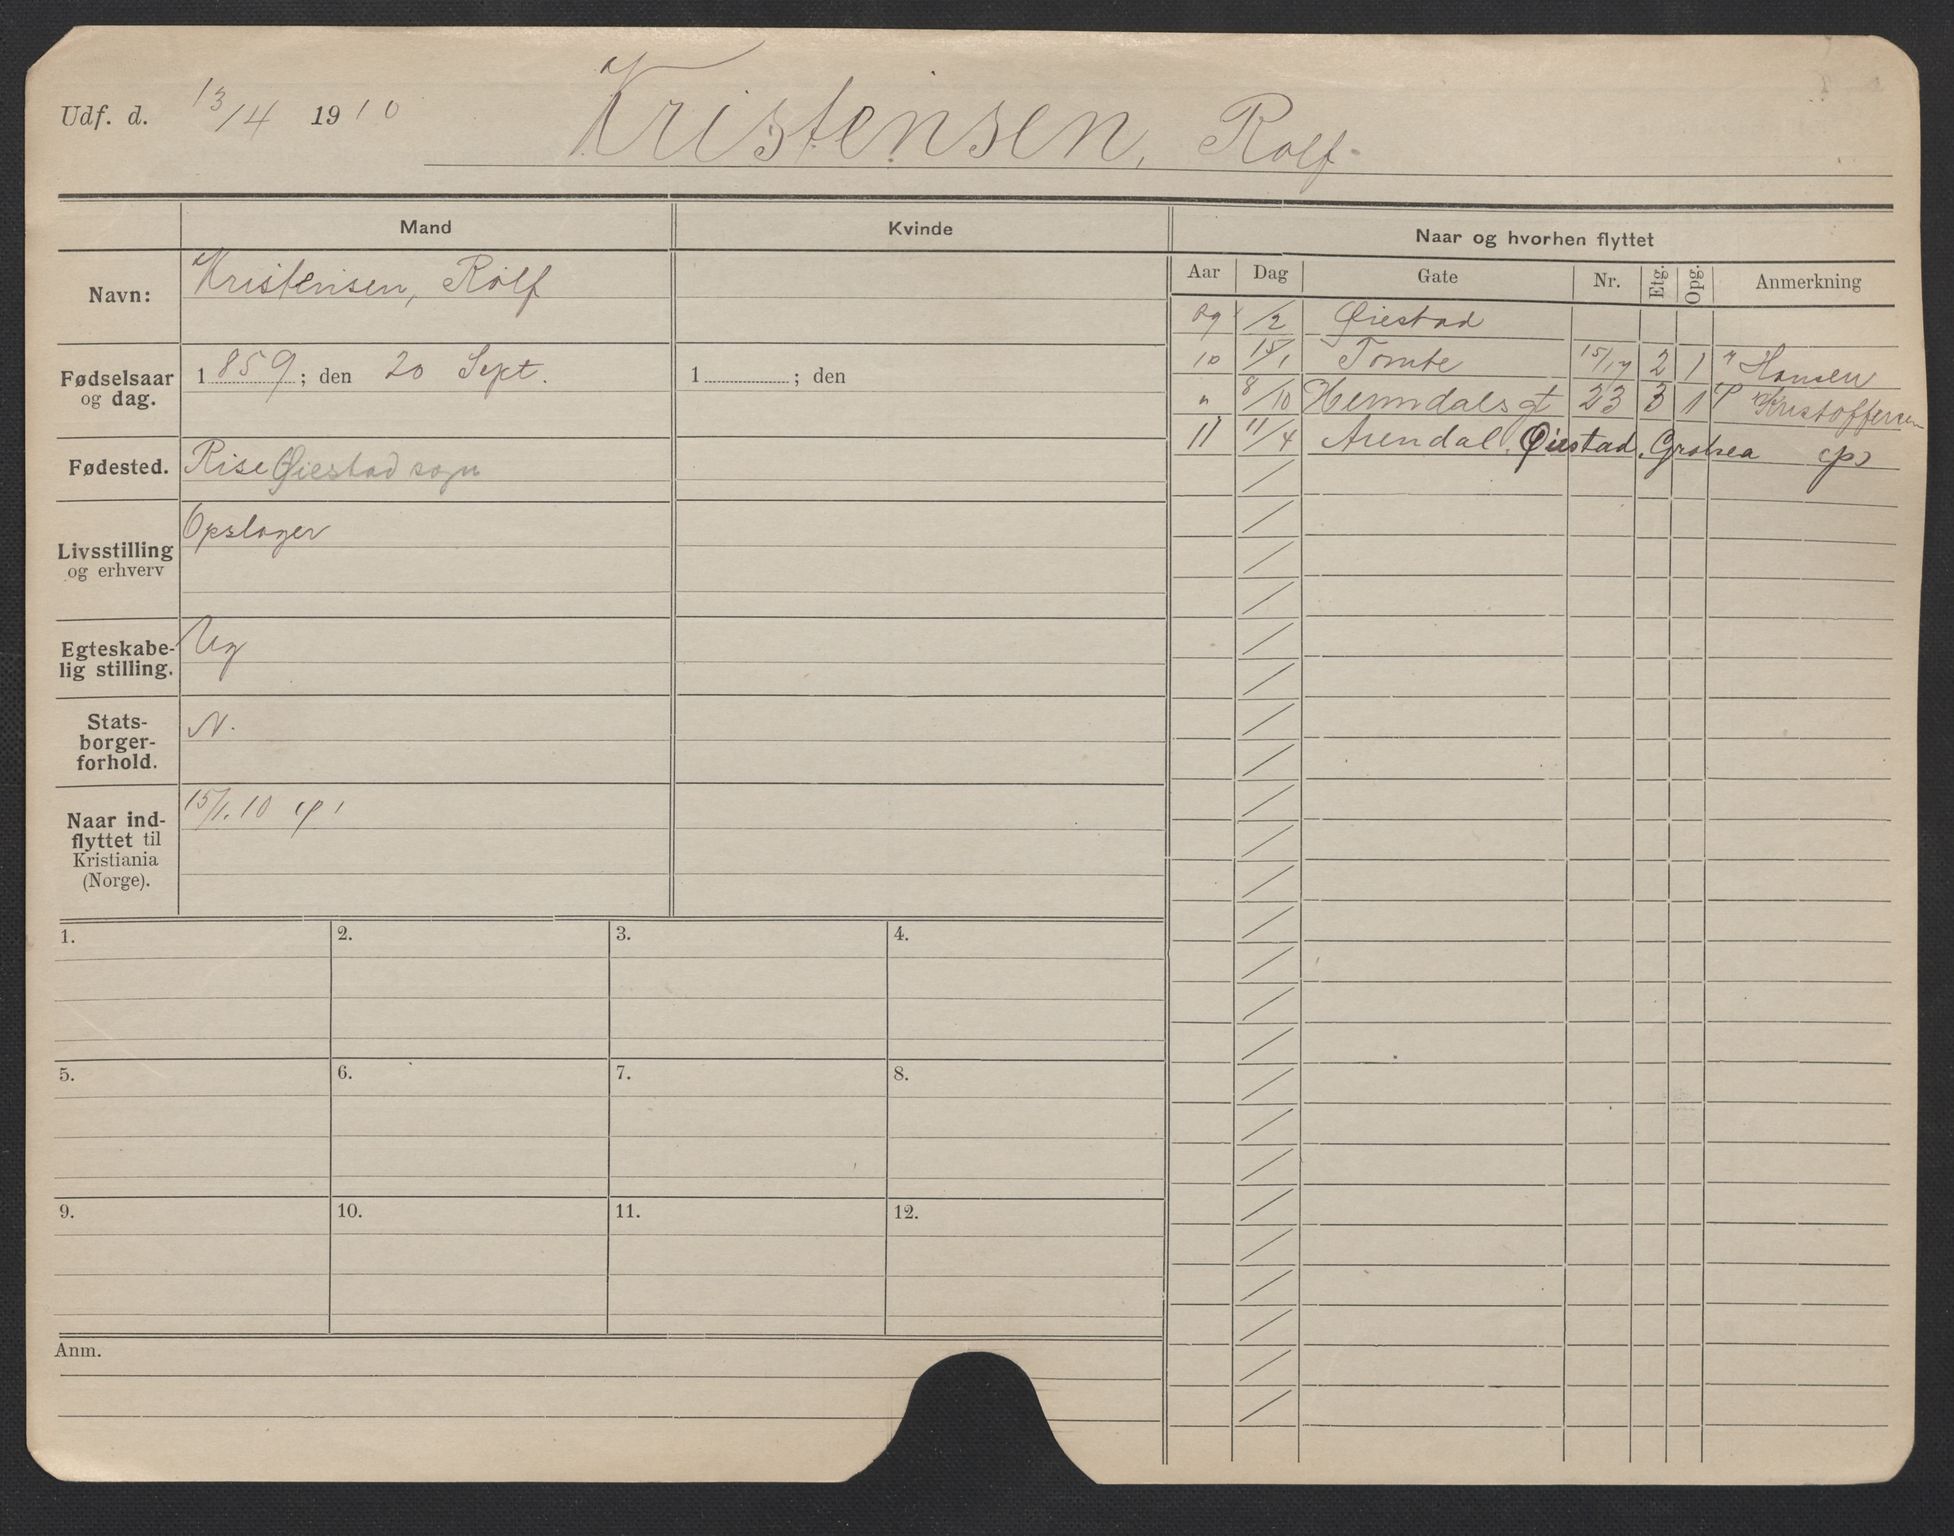 Udf. d. 13/4 1910 Kristensen, Rolf
Mand Kvinde Naar og hvorhen flyttet
Aar Dag Gate Nr. Etg. Opg. Anmerkning
Navn: Kristensen, Rolf
Fødselsaar og dag. 1859; den 20 Sept. 1 ; den
Fødested. Rise Øiestad sogn
Livsstilling og erhverv Opslager
Egteskabe-
lig stilling. Ug
Stats-
borger-
forhold. N.
Naar ind-
flyttet til
Kristiania
(Norge). 15/1.10
09 /2 Øiestad
10 15/1 Tomte 15/17 2 1 Hansen
" 8/10 Heimdals gt 23 3 1 Kristoffersen
11 11/4 Arendal, Øiestad,
1. 2. 3. 4.
5. 6. 7. 8.
9. 10. 11. 12.
Anm.